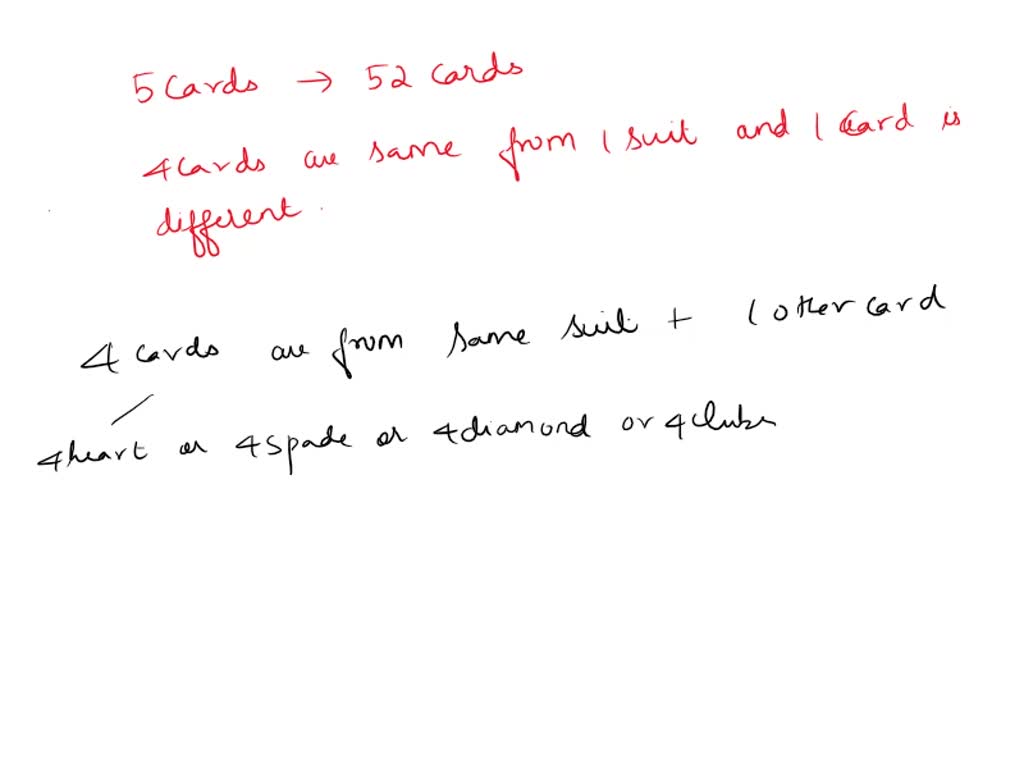 5 Cards → 52 cards
4 Cards are same from 1 suit and 1 card is
different.
4 cards are from same suit + 1 other card
4 heart or 4 spade or 4 diamond or 4 clubs